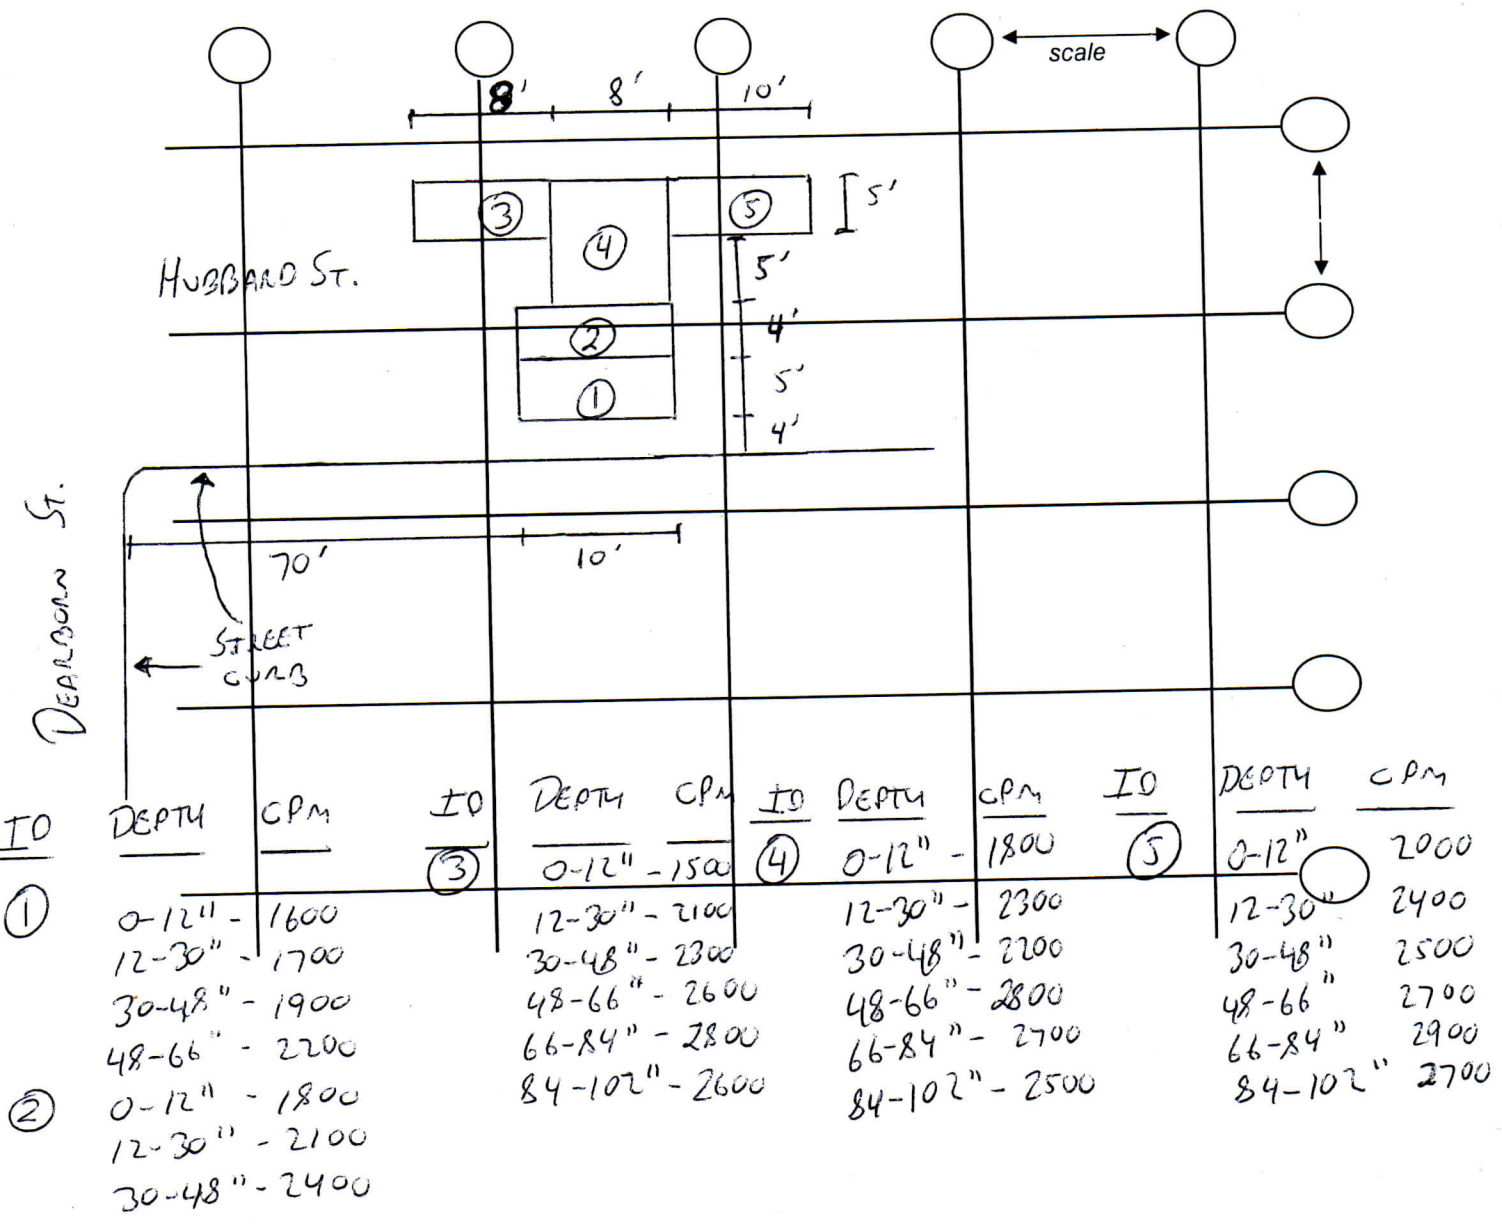 scale
8' 8' 10'
③ ④ ⑤ 5'
HUBBARD ST.
5'
② 4'
① 5'
4'
DEARBORN ST.
70' 10'
STREET
CURB
ID DEPTH CPM
① 0-12" - 1600
12-30" - 1700
30-48" - 1900
48-66" - 2200
② 0-12" - 1800
12-30" - 2100
30-48" - 2400
ID DEPTH CPM
③ 0-12" - 1500
12-30" - 2100
30-48" - 2300
48-66" - 2600
66-84" - 2800
84-102" - 2600
ID DEPTH CPM
④ 0-12" - 1800
12-30" - 2300
30-48" - 2200
48-66" - 2800
66-84" - 2700
84-102" - 2500
ID DEPTH CPM
⑤ 0-12" 2000
12-30" 2400
30-48" 2500
48-66" 2700
66-84" 2900
84-102" 2700